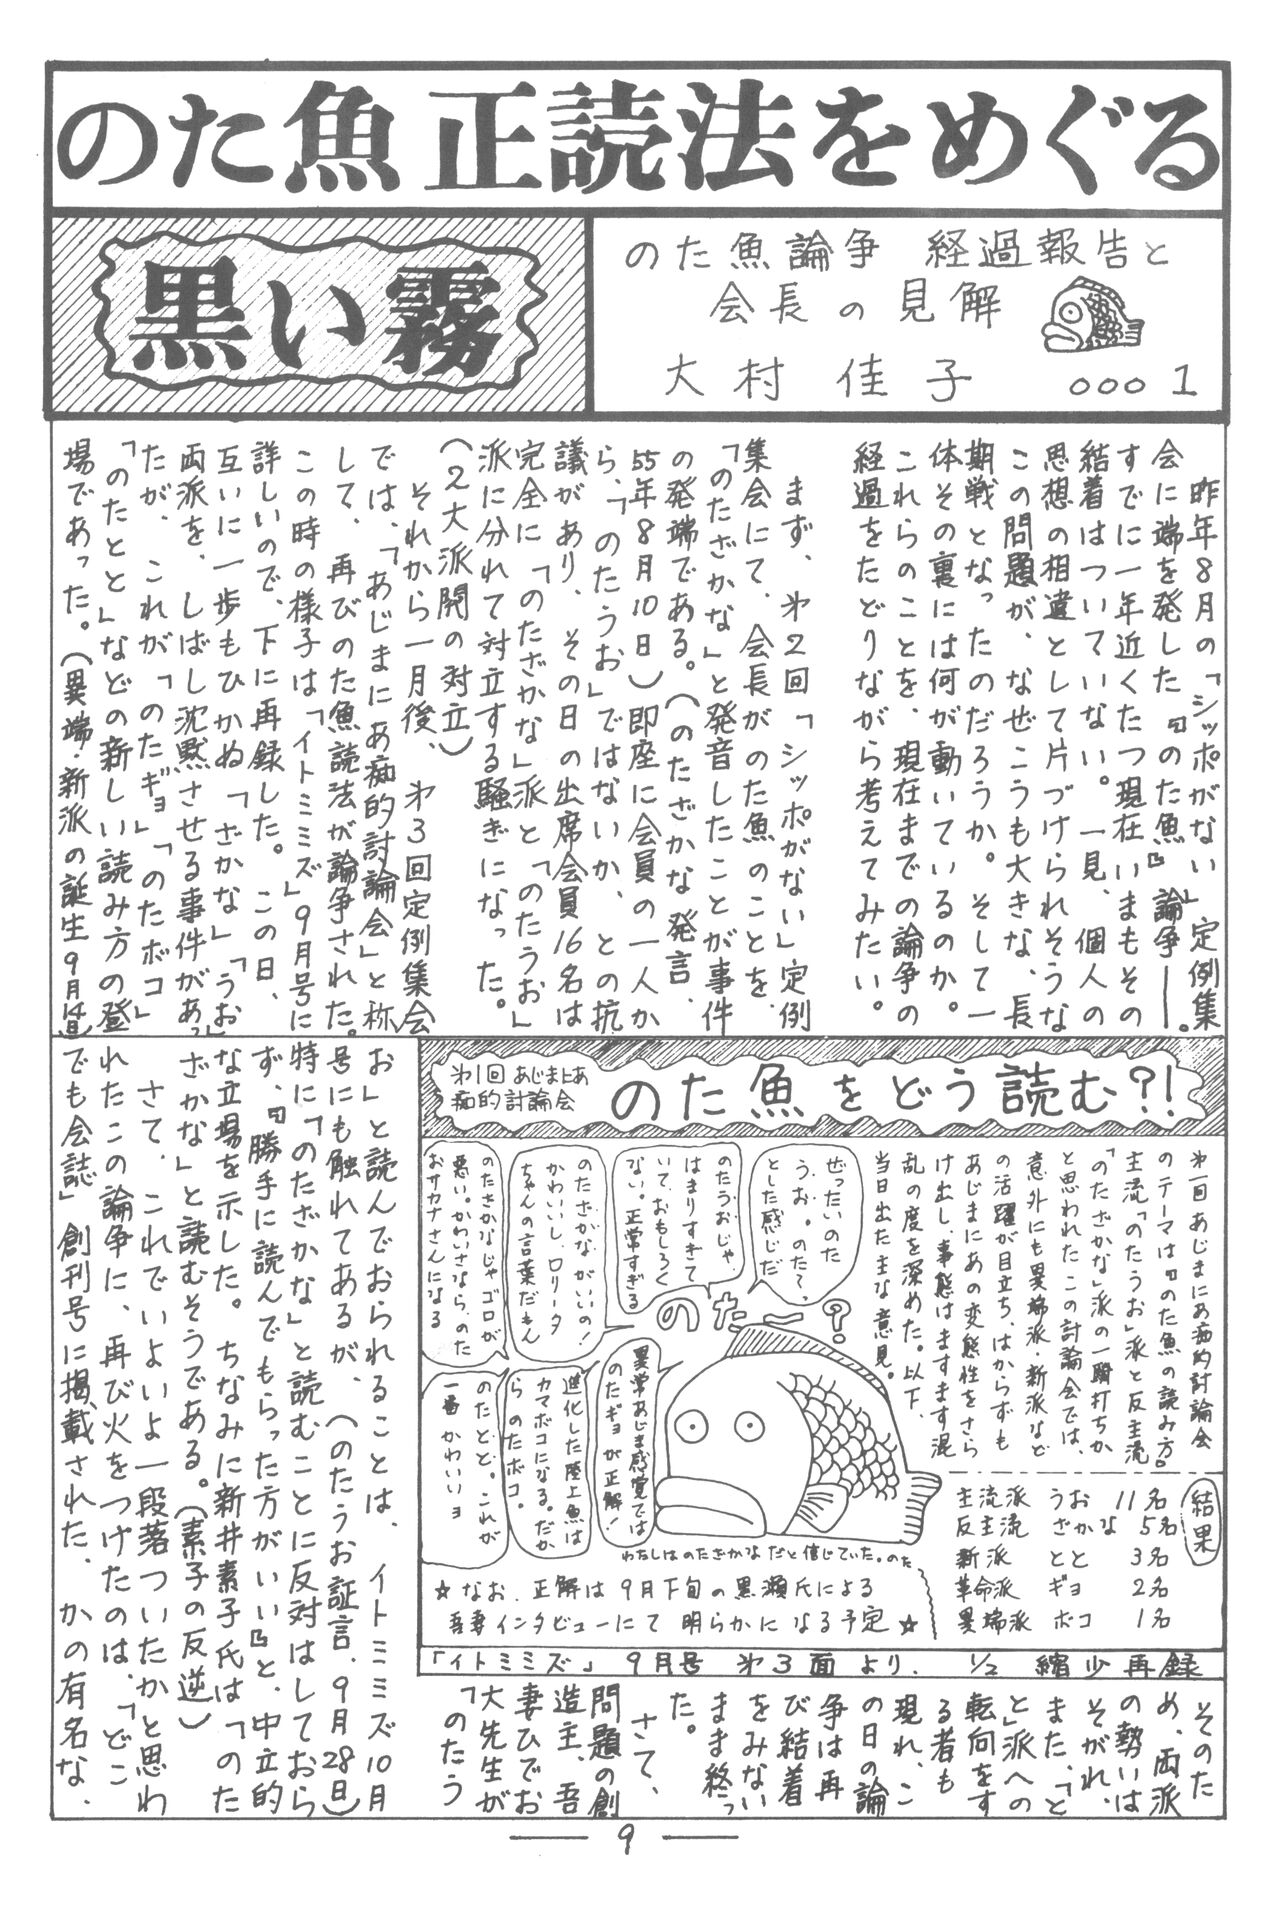 のた魚正読法をめぐる
黒い霧
のた魚論争 経過報告と
会長の見解
大村佳子 ○○○1
昨年8月の「シッポがない」定例集
会に端を発した『のた魚』論争――。
すでに一年近くたつ現在いまもその
結着はついていない。一見、個人の
思想の相違として片づけられそうな
この問題が、なぜこうも大きな、長
期戦となったのだろうか。そして一
体その裏には何が動いているのか。
これらのことを、現在までの論争の
経過をたどりながら考えてみたい。
まず、第2回「シッポがない」定例
集会にて、会長がのた魚のことを、
「のたざかな」と発音したことが事件
の発端である。(のたざかな発言、
55年8月10日)即座に会員の一人か
ら、「のたうお」ではないか、との抗
議があり、その日の出席会員16名は
完全に「のたざかな」派と「のたうお」
派に分れて対立する騒ぎになった。
(2大派閥の対立)
それから一月後、第3回定例集会
では、「あじまにあ痴的討論会」と称
して、再びのた魚読法が論争された。
この時の様子は「イトミミズ」9月号に
詳しいので、下に再録した。この日、
互いに一歩もひかぬ「ざかな」「うお」
両派を、しばし沈黙させる事件があっ
たが、これが「のたギョ」「のたボコ」
「のたとと」などの新しい読み方の登
場であった。(異端・新派の誕生9月14日)
第1回あじまにあ
痴的討論会
のた魚をどう読む?!
第一回あじまにあ痴的討論会
のテーマは『のた魚の読み方』。
主流「のたうお」派と反主流
「のたざかな」派の一騎打ちか
と思われたこの討論会では、
意外にも異端派・新派など
の活躍が目立ち、はからずも
あじまにあの変態性をさら
け出し、事態はますます混
乱の度を深めた。以下、
当日出た主な意見。
ぜったいのた
うお。のた〜、
とした感じだ
のたうおじゃ、
はまりすぎて
いて、おもしろく
ない。正常すぎる
のたざかながいいの!
かわいいし、ロリータ
ちゃんの言葉だもん
のたざかなじゃゴロが
悪い。かわいさなら、のた
おサカナさんになる
のたー?
異常あじま感覚では
のたギョが正解!
進化した陸上魚は
カマボコになる。だか
ら のたボコ。
のたとと。これが
一番かわいいョ
わたしはのたざかなだと信じていた。のた
☆なお、正解は9月下旬の黒瀬氏による
吾妻インタビューにて 明らかになる予定☆
結果
主流派 うお 11名
反主流 ざかな 5名
新派 とと 3名
革命派 ギョ 2名
異端派 ボコ 1名
「イトミミズ」9月号 第3面より、1/2 縮少再録
そのた
め、両派
の勢いは
それが、
また、「と
と」派への
転向をす
る者も
現れ、こ
の日の論
争は再
び結着
をみない
まま終っ
た。
さて、
問題の創
造主、吾
妻ひでお
大先生が
「のたう
お」と読んでおられることは、イトミミズ10月
号にも触れてあるが、(のたうお証言、9月28日)
特に「のたざかな」と読むことに反対はしておら
ず、『勝手に読んでもらった方がいい』と、中立的
な立場を示した。ちなみに新井素子氏は「のた
ざかな」と読むそうである。(素子の反逆)
さて、これでいよいよ一段落ついたかと思わ
れたこの論争に、再び火をつけたのは、「どこ
でも会誌」創刊号に掲載された、かの有名な、
9